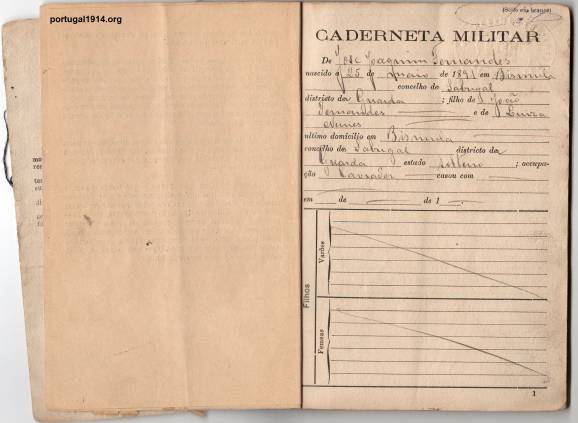 portugal1914.org
(Sêllo em branco)
CADERNETA MILITAR
De José Joaquim Fernandes
nascido a 25 de de 1891 em Bismula
concelho de Sabugal
districto da Guarda ; filho de João
Fernandes e de Luiza
Nunes
ultimo domicilio em Bismula
concelho de Sabugal districto da
Guarda estado solteiro ; occupa-
ção Lavrador casou com
em de de 1
Filhos
Varões
Femeas
1